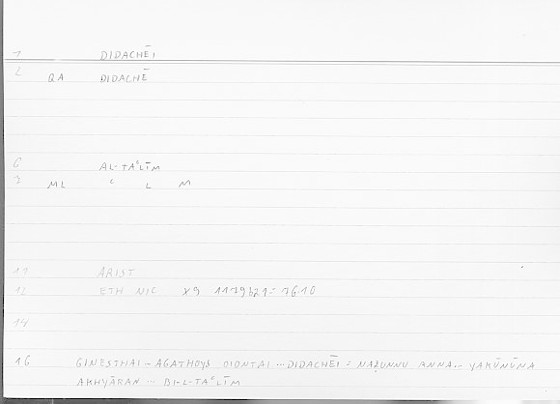 1 DIDACHĒI
2 QA DIDACHĒ
6 AL-TAʿLĪM
7 ML ʿ L M
11 ARIST
12 ETH NIC X9 1179b21 = 76.10
14
16 GINESTHAI – AGATHOYS OIONTAI ... DIDACHĒI = NAẒUNNU ANNA... YAKŪNŪNA
AKHYĀRAN ... BI-L-TAʿLĪM